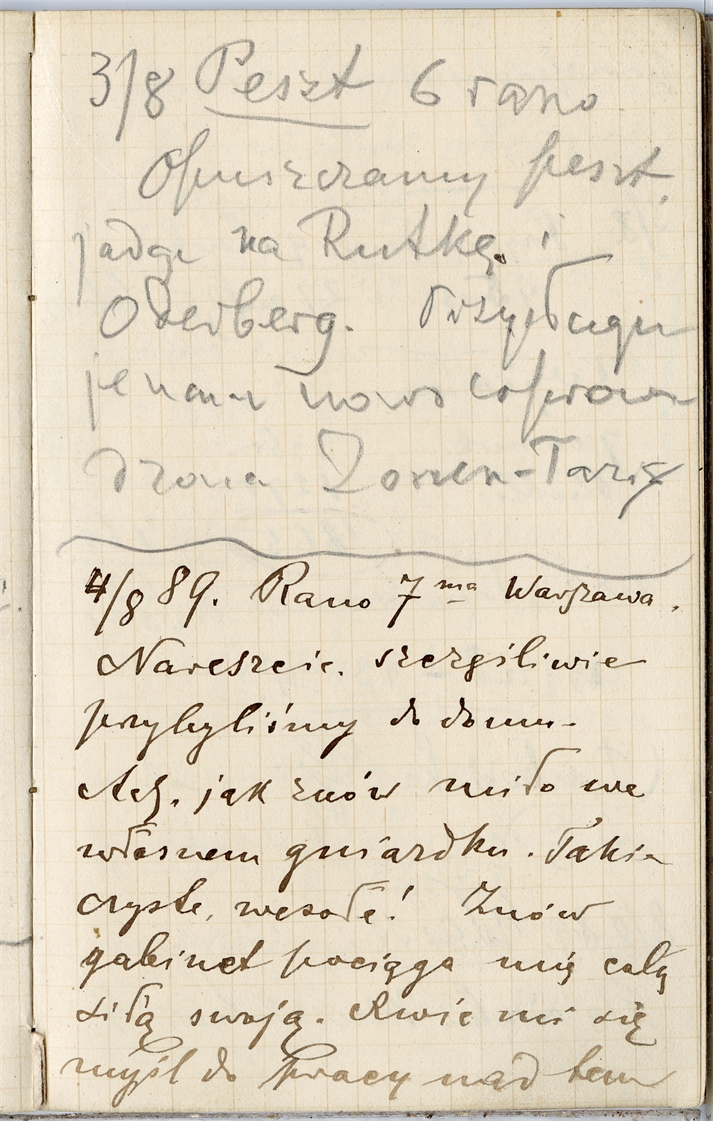 3/8 Peszt 6 rano
Opuszczamy peszt.
jadąc na Rutkę i
Oderberg. Przyglądam
nowo
dzona Zonen-Tarif
4/8 89. Rano 7ma Warszawa.
Nareszcie. szczęśliwie
przybyliśmy do domu.
Ach, jak znów miło we
własnem gniazdku. Takie
czyste, wesołe! Znów
gabinet pociąga mię całą
siłą swoją. Rwie mi się
myśl do pracy nad tem